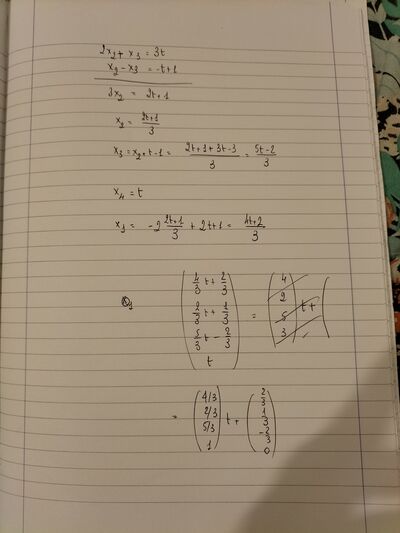 2x₂ + x₃ = 3t
x₂ - x₃ = -t+1
3x₂ = 2t+1
x₂ = (2t+1)/3
x₃ = x₂ + t - 1 = (2t+1+3t-3)/3 = (5t-2)/3
x₄ = t
x₁ = -2 (2t+1)/3 + 2t+1 = (4t+2)/3
(4/3 t + 2/3, 2/3 t + 1/3, 5/3 t - 2/3, t) = (4, 2, 5, 3) t + (
= (4/3, 2/3, 5/3, 1) t + (2/3, 1/3, -2/3, 0)